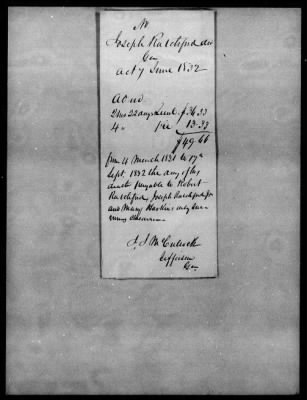 No
Joseph Ratchford decd
Geo
act 7 June 1832
At no
2 mo 22 days $36.33
4 " 13.33
$49.66
from 4 March 1831 to 17th
Sept. 1832 the day of his
death payable to Robert
Ratchford, Joseph Ratchford Jr
and Mary Hawkins only sur-
viving children
J. J. McCulloch
Jefferson
Geo